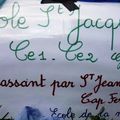 ole St Jacq
Ce1. Ce2
assant par St Jean
Cap Fe
Ecole de la